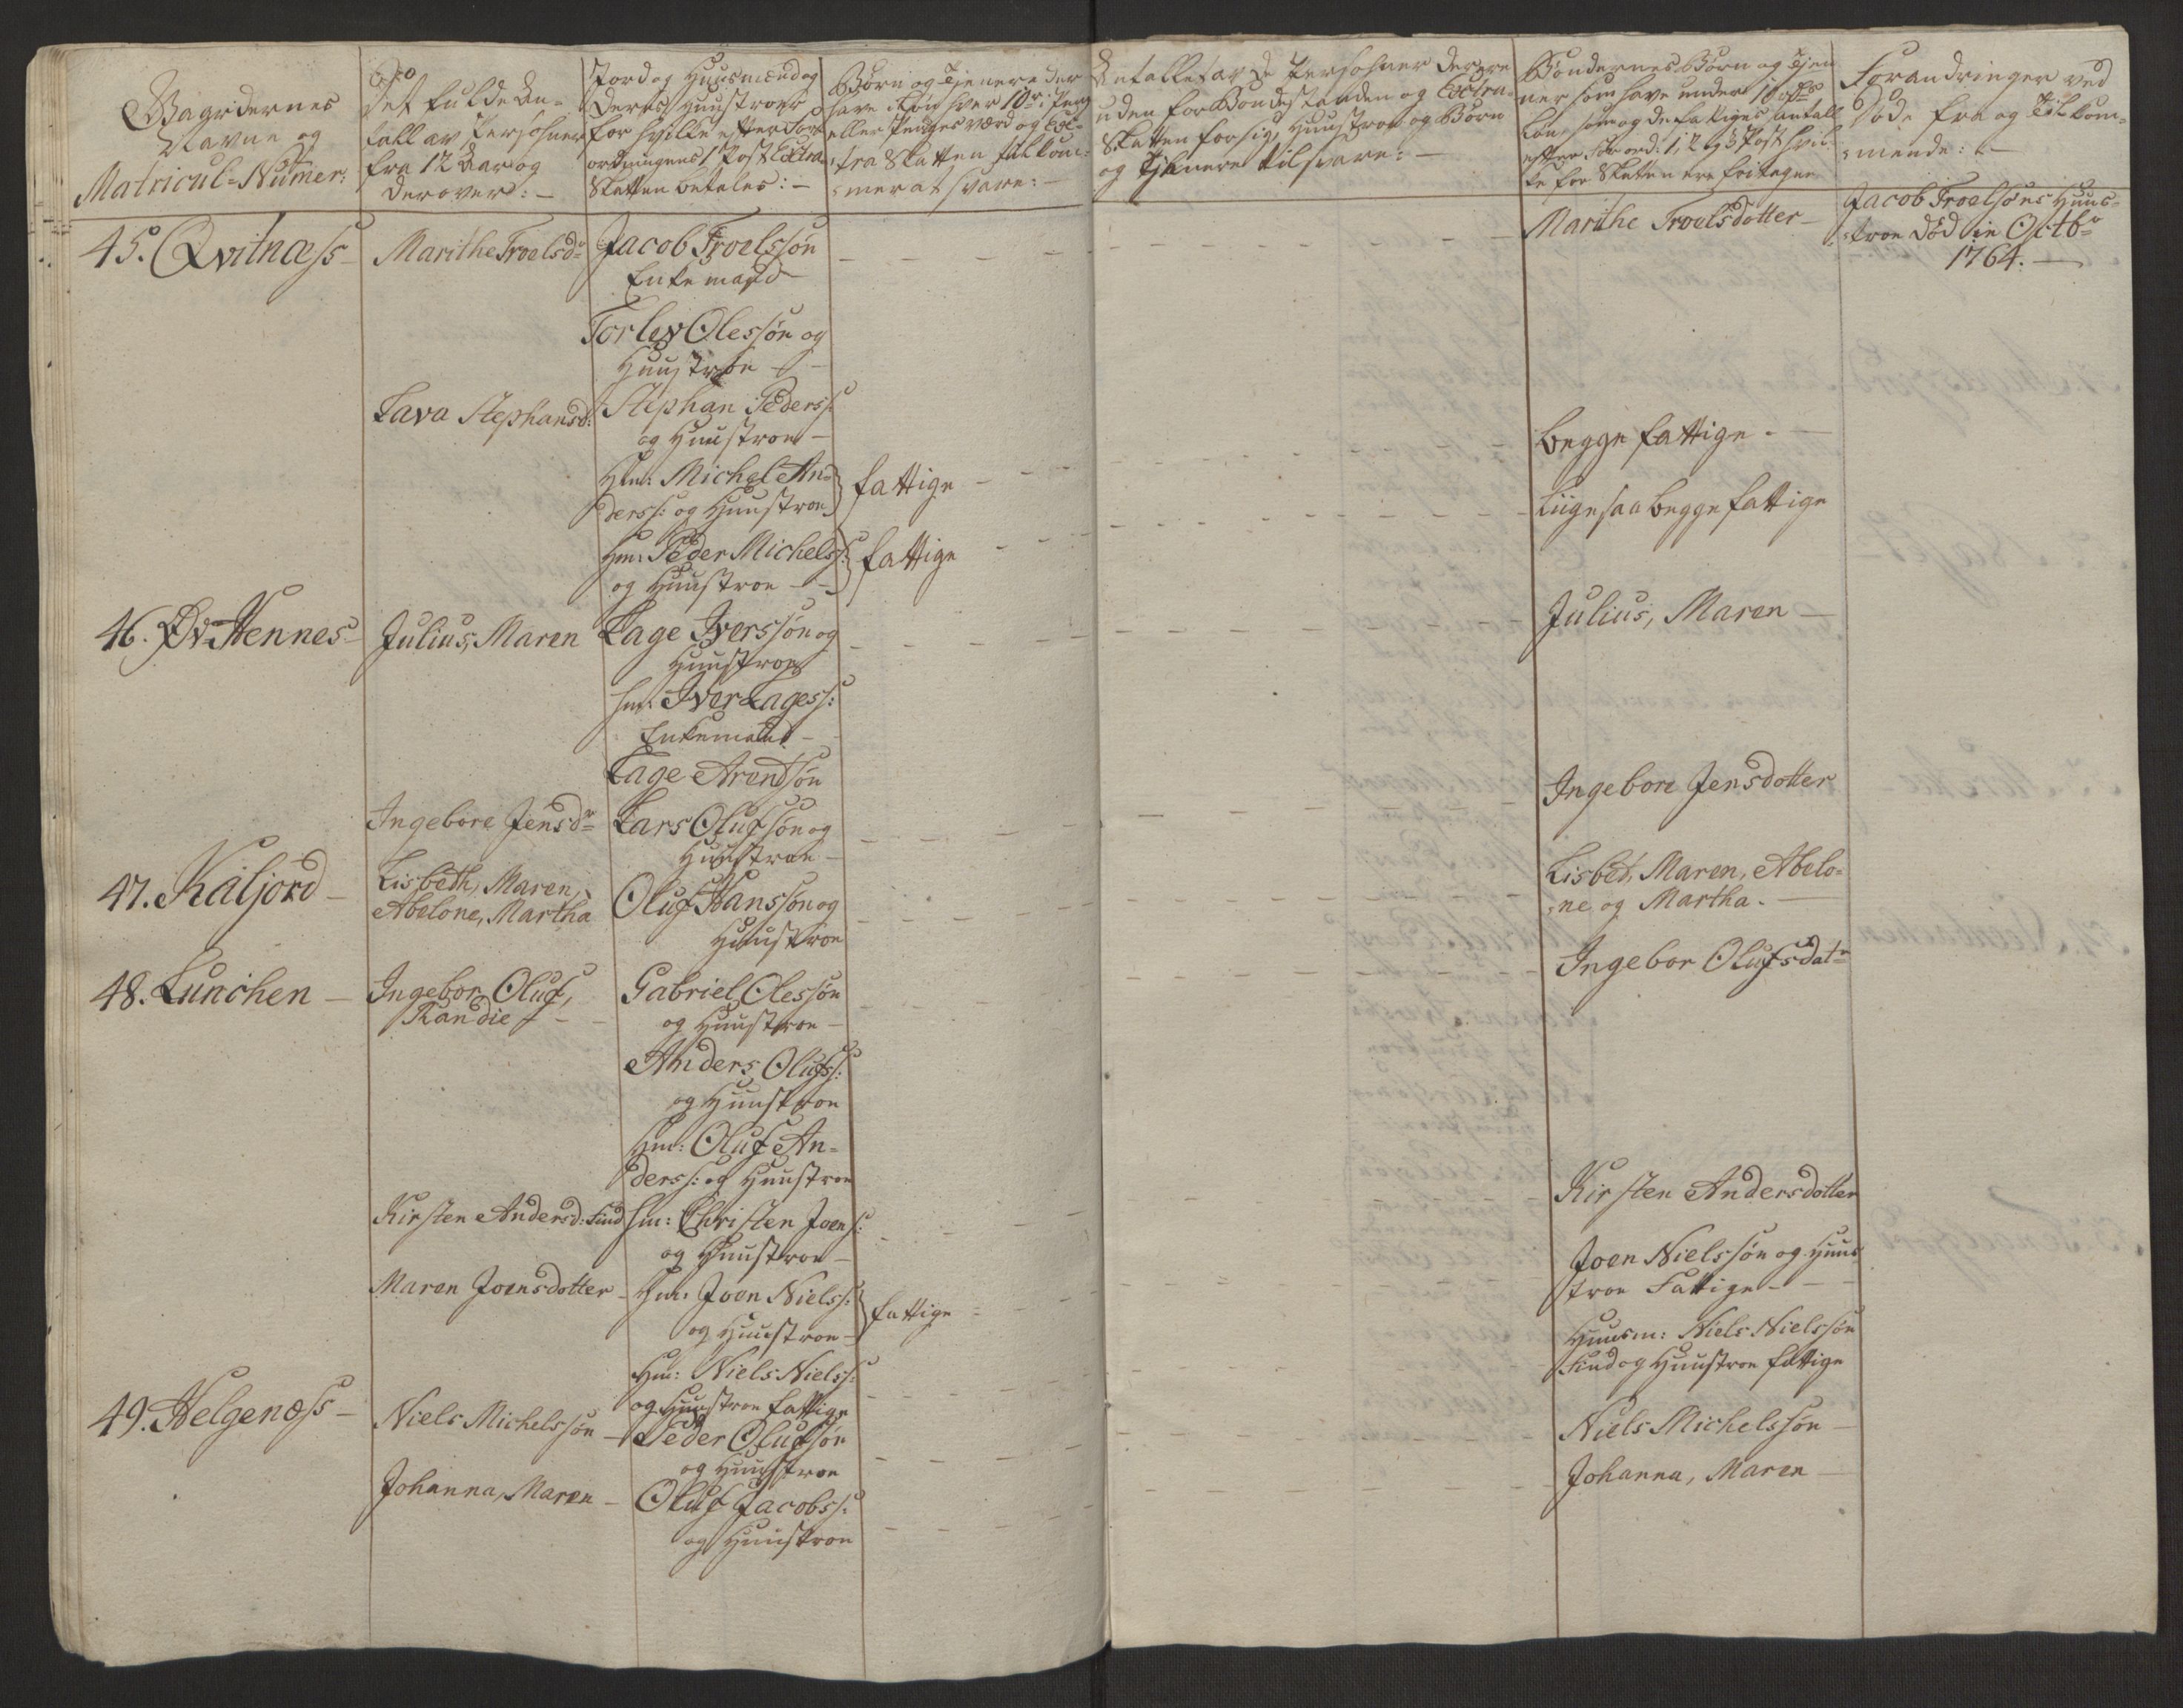 Gaardernes
Navne og
Matricul-Numer:
Det fulde An-
tall av Persohner
fra 12 Aar og
derover: —
Jord og Huusmænd og
deres Huustroer
for hvilke efter For-
ordningens 1 Post Extra
Skatten betales: —
Børn og Tjenere der
have Løn hver 10 r: i Peng
eller Penges værd og Ex-
tra Skatten tilkom-
mer at svare: —
Antallet av de Persohner der ere
uden for Bondestanden og Extra-
Skatten for sig, Huustroe og Børn
og Tjenere tilsvare: —
Bøndernes Børn og Tjen
ner som have under 10
Løn, som og de fattiges antall
efter Forord: 1, 2 og 3 Post hvil-
ke for Skatten ere fritagne
Forandringer ved
Døde fra og Tilkom-
mende: —
45. Qvitnæss —
Marithe Troelsdr
Jacob Troelssøn
Enkemand
Marithe Troelsdotter —
Jacob Troelsøns Huus-
troe død in Octbr
1764. —
Torlev Olessøn og
Huustroe —
Lava Stephansd:
Stephan Peders:
og Huustroe —
Hm: Michel An-
ders: og Huustroe
fattige —
begge fattige. —
Hm: Peder Michels:
og Huustroe —
fattige
Liigesaa begge fattige
46. Øv Hennes —
Julius, Maren
Lage Iverssøn og
Huustroe
Julius, Maren —
Hm: Iver Lages:
Enkemand —
Lage Arentsøn
Ingebore Jensdr
Lars Olufsøn og
Huustroe —
Ingebore Jensdotter
47. Kaljord —
Lisbeth, Maren,
Abelone, Martha
Oluf Hanssøn og
Huustroe
Lisbet, Maren, Abelo-
ne og Martha. —
48. Lunchen —
Ingebor Oluf,
Randie —
Gabriel Olessøn
og Huustroe —
Ingebor Olufsdatr
Anders Olufs:
og Huustroe
Hm: Oluf An-
ders: og Huustroe
Kirsten Andersd: Find
Hm: Christen Joens:
og Huustroe —
Kirsten Andersdotter
Maren Joensdotter —
Hm: Joen Niels:
og Huustroe —
fattige
Joen Nielssøn og Huus
troe Fattige —
Hm: Niels Niels:
og Huustroe fattige
Huusm: Niels Nielssøn
Find og Huustroe fattige
49. Helgenæss —
Niels Michelssøn —
Peder Olufsøn
og Huustroe
Niels Michelssøn —
Johanna, Maren —
Oluf Jacobs:
og Huustroe
Johanna, Maren —